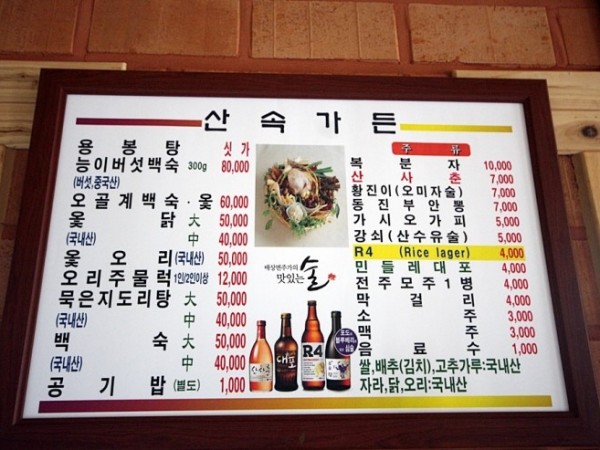 산속가든
용봉탕 싯가
능이버섯백숙 300g 80,000
(버섯,중국산)
오골계백숙·옻 60,000
옻닭 大 50,000
(국내산) 中 40,000
옻오리(국내산) 50,000
오리주물럭 1인/2인이상 12,000
묵은지도리탕 大 50,000
(국내산) 中 40,000
백숙 大 50,000
(국내산) 中 40,000
공기밥(별도) 1,000
배상면주가의
맛있는 술
대포
R4
주류
복분자 10,000
산사춘 7,000
황진이(오미자술) 7,000
동진부안뽕 7,000
가시오가피 5,000
강쇠(산수유술) 5,000
R4 (Rice lager) 4,000
민들레대포 4,000
전주모주1병 4,000
막걸리 4,000
소주 3,000
맥주 3,000
음료수 1,000
쌀,배추(김치),고추가루:국내산
자라,닭,오리:국내산